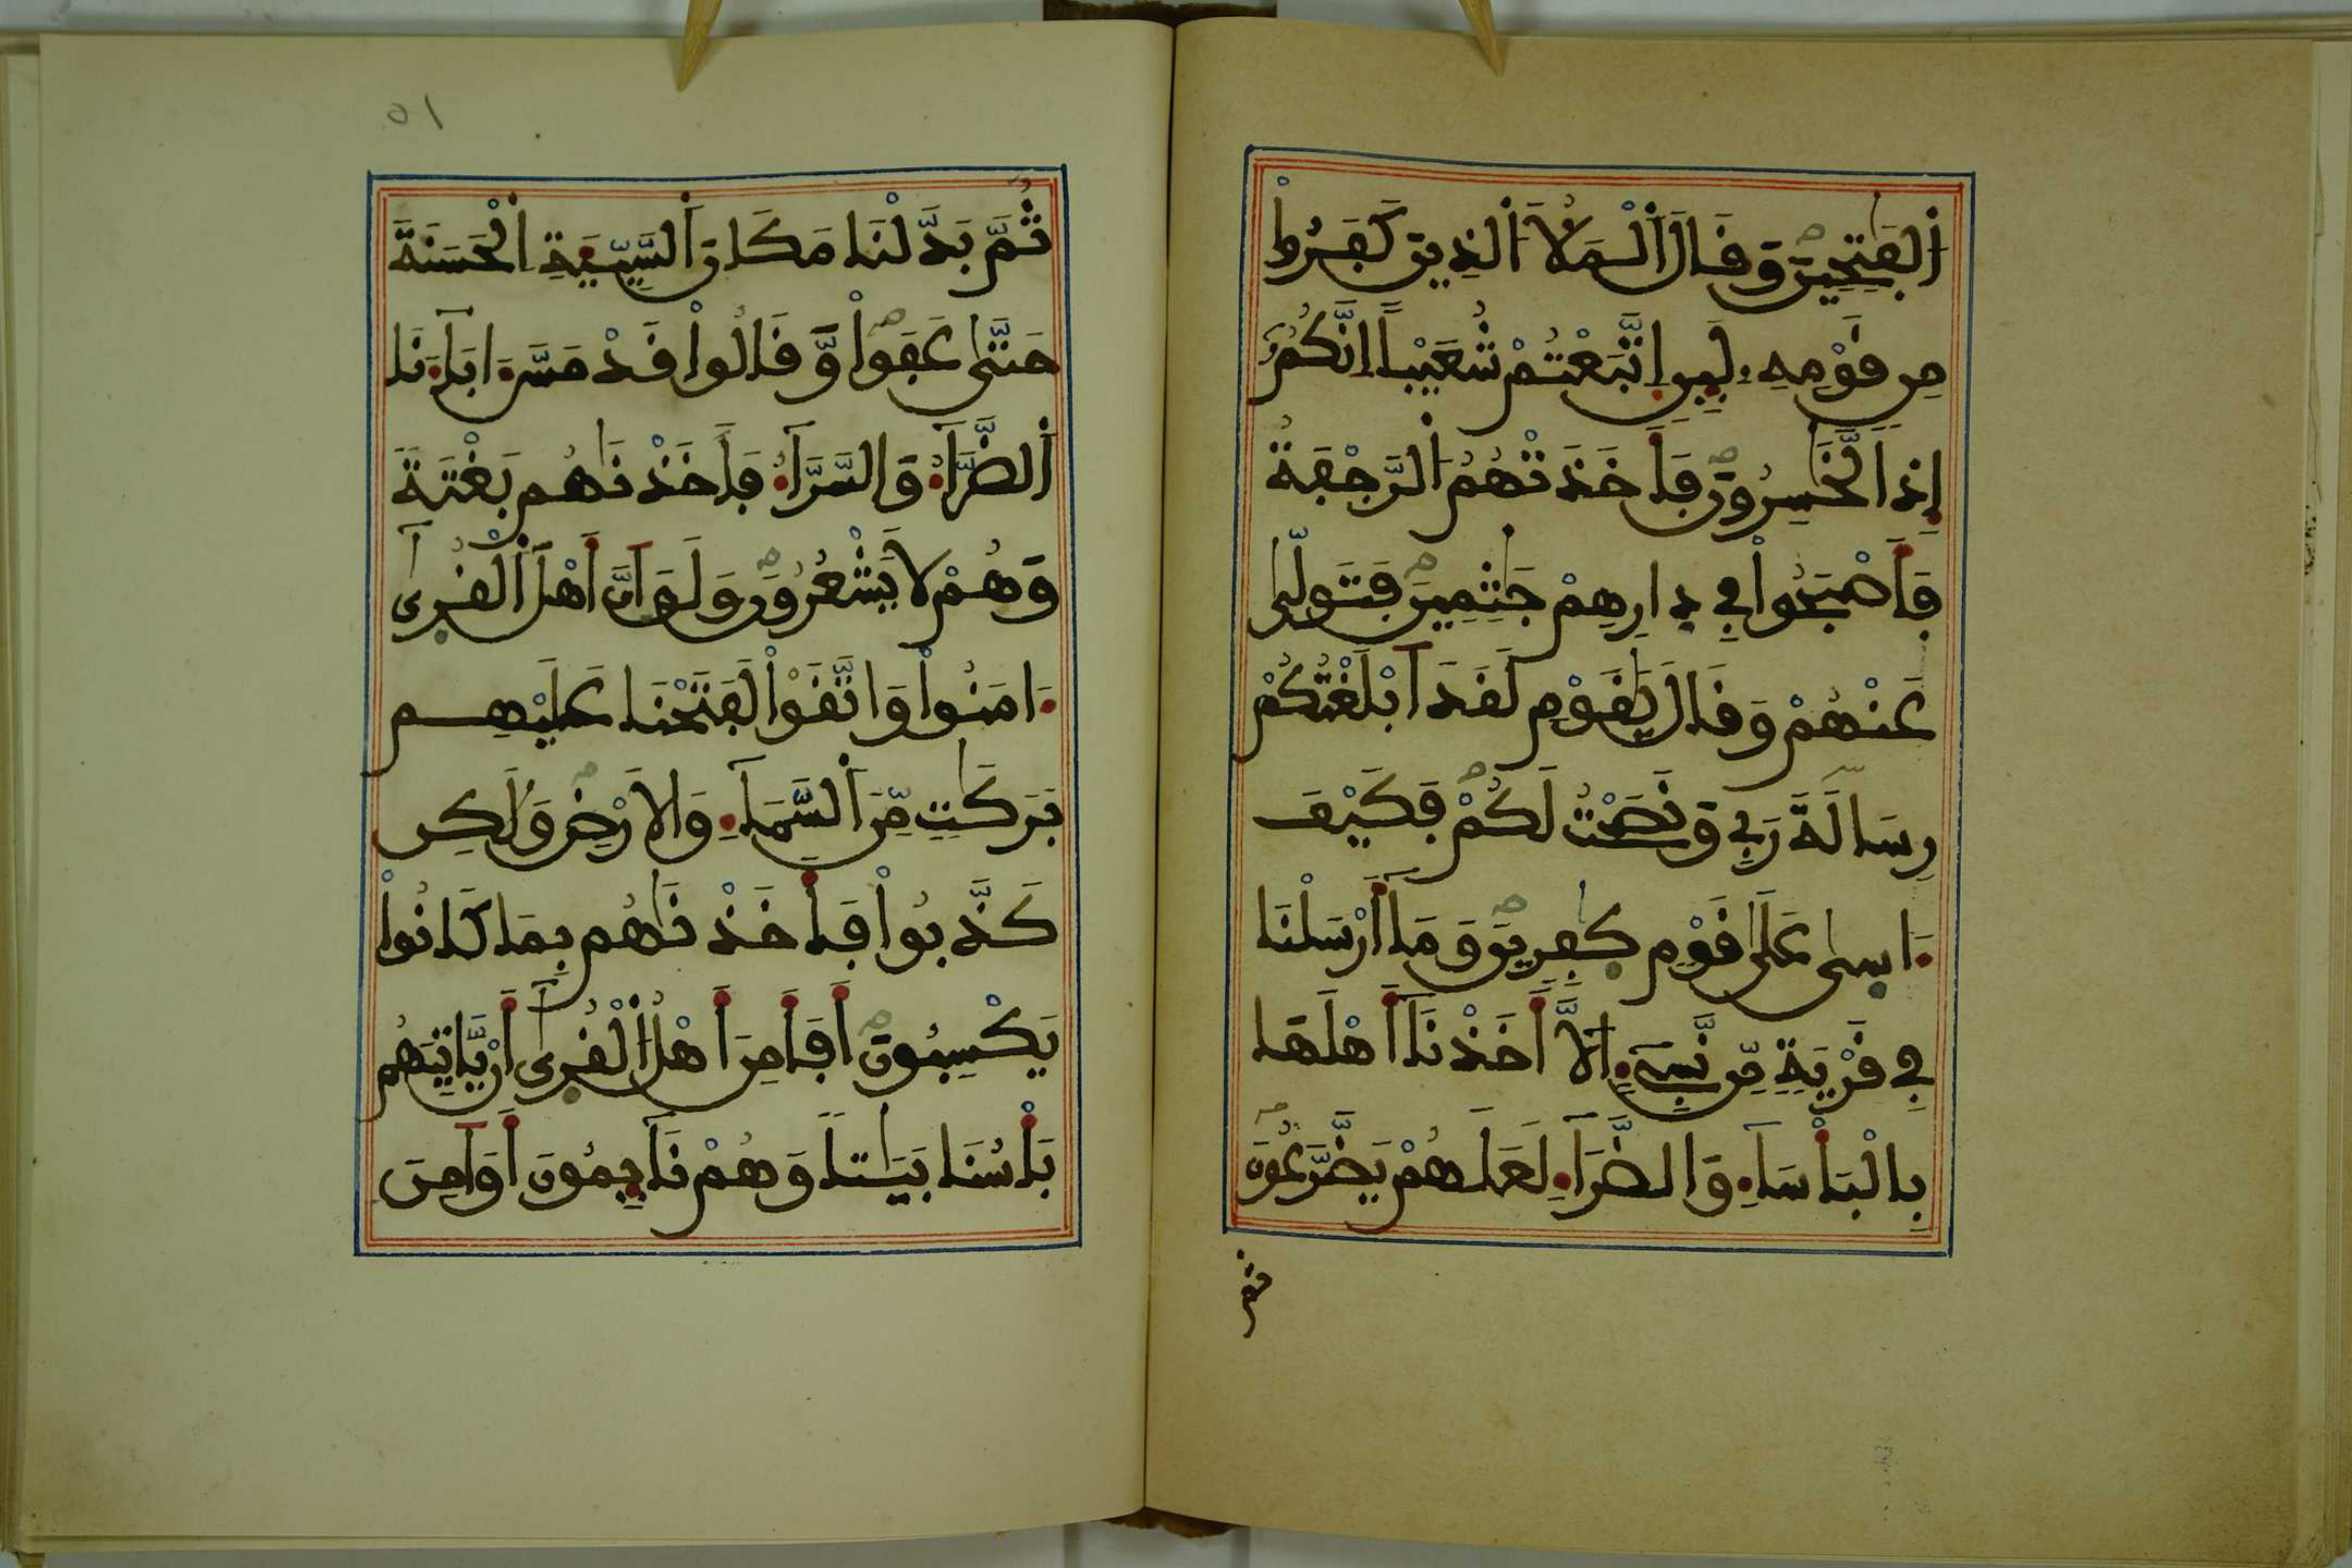 اَ۬لْفَٰتِحِينَ وَقَالَ اَ۬لْمَلَأُ اَ۬لذِينَ كَفَرُواْ
مِن قَوْمِهِۦ لَئِنِ اِتَّبَعْتُمْ شُعَيْباً اِنَّكُمُۥٓ
إِذاً لَّخَٰسِرُونَ فَأَخَذَتْهُمُ اُ۬لرَّجْفَةُ
فَأَصْبَحُواْ فِي دِارِهِمْ جَٰثِمِينَ فَتَوَلّ۪ىٰ
عَنْهُمْ وَقَالَ يَٰقَوْمِ لَقَدَ اَبْلَغْتُكُمْ
رِسَالَةَ رَبِّي وَنَصَحْتُ لَكُمْ فَكَيْفَ
ءَاس۪ىٰ عَلَىٰ قَوْمٍ كٰ۪فِرِينَ وَمَا أَرْسَلْنَا
فِي قَرْيَةٍ مِّن نَّبِيٓءٍ اِلَّا أَخَذْنَا أَهْلَهَا
بِالْبَأْسَآءِ وَالضَّرَّآءِ لَعَلَّهُمْ يَضَّرَّعُونَ
ثم
٥١
ثُمَّ بَدَّلْنَا مَكَانَ اَ۬لسَّيِّئَةِ اِ۬لْحَسَنَةَ
حَتَّىٰ عَفَواْ وَّقَالُواْ قَدْ مَسَّ ءَابَآءَنَا
اَ۬لضَّرَّآءُ وَالسَّرَّآءُ فَأَخَذْنَٰهُم بَغْتَةً
وَهُمْ لَا يَشْعُرُونَ وَلَوَ اَنَّ أَهْلَ اَ۬لْقُر۪ىٰٓ
ءَامَنُواْ وَاتَّقَوْاْ لَفَتَحْنَا عَلَيْهِم
بَرَكَٰتٍ مِّنَ اَ۬لسَّمَآءِ وَالَارْضِ وَلَٰكِن
كَذَّبُواْ فَأَخَذْنَٰهُم بِمَا كَانُواْ
يَكْسِبُونَ أَفَأَمِنَ أَهْلُ اُ۬لْقُر۪ىٰٓ أَنْ يَّاتِيَهُم
بَأْسُنَا بَيَٰتاً وَهُمْ نَآئِمُونَ أَوَ اَمِنَ